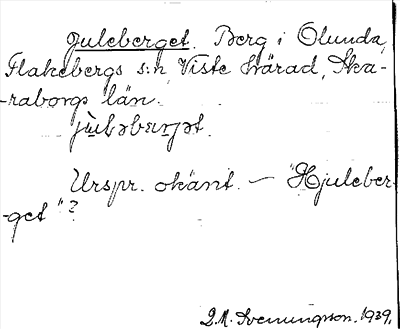 Juleberget. Berg i Olunda,
Flakebergs s:n, Viste härad, Ska-
-raborgs län.
Urspr. okänt. — "Hjuleber-
-get"?
Svenungsson. 1939.